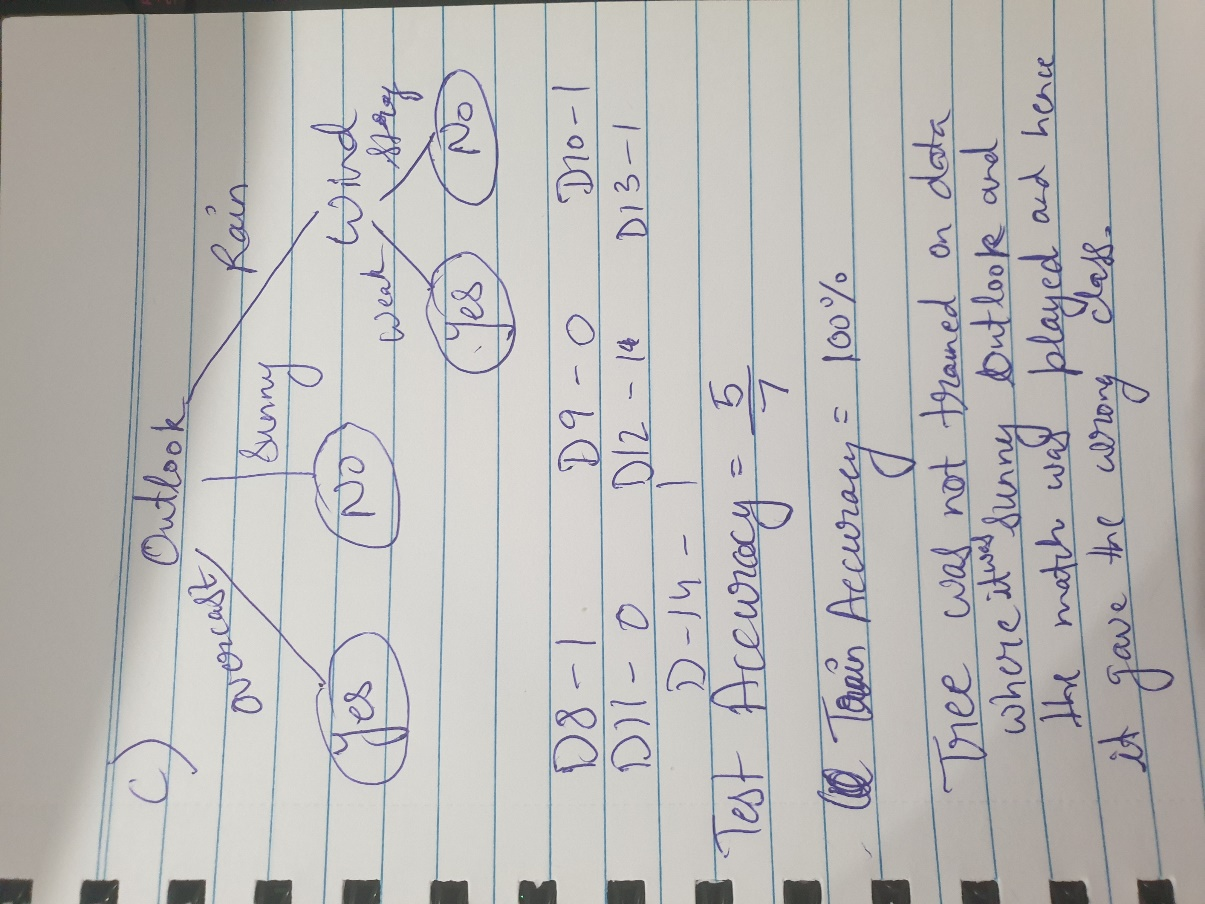 C) Outlook
overcast Sunny Rain
Yes No Wind
Weak
Yes No
D8 - 1 D9 - 0 D10 - 1
D11 - 0 D12 - 1 D13 - 1
D-14 - 1
Test Accuracy = 5/7
Train Accuracy = 100%
Tree was not trained on data
where it was Sunny Outlook and
the match was played and hence
it gave the wrong class.